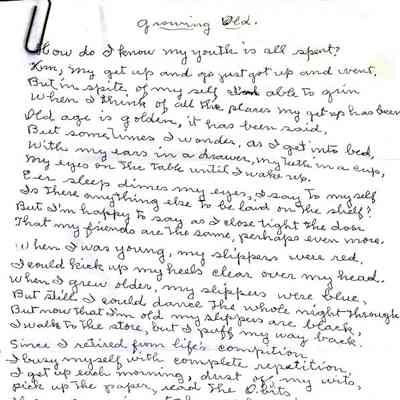 Growing Old.
How do I know my youth is all spent?
my get up and go just got up and went.
But in spite of my self I'm able to grin
When I think of all the places my get up has been
Old age is golden, it has been said,
But sometimes I wonder, as I get into bed,
With my ears in a drawer, my teeth in a cup,
My eyes on the table until I wake up.
Eer sleep dimes my eyes, I say to myself
Is there anything else to be laid on the shelf?
But I'm happy to say as I close tight the door
That my friends are the same, perhaps even more.
When I was young, my slippers were red,
I could kick up my heels clear over my head.
When I grew older, my slippers were blue,
But still I could dance the whole night through
But now that I'm old my slippers are black,
I walk to the store, but I puff my way back.
Since I retired from life's compition
I busy myself with complete repetition,
I get up each morning, dust of my wits,
pick up the paper, read the O.bits